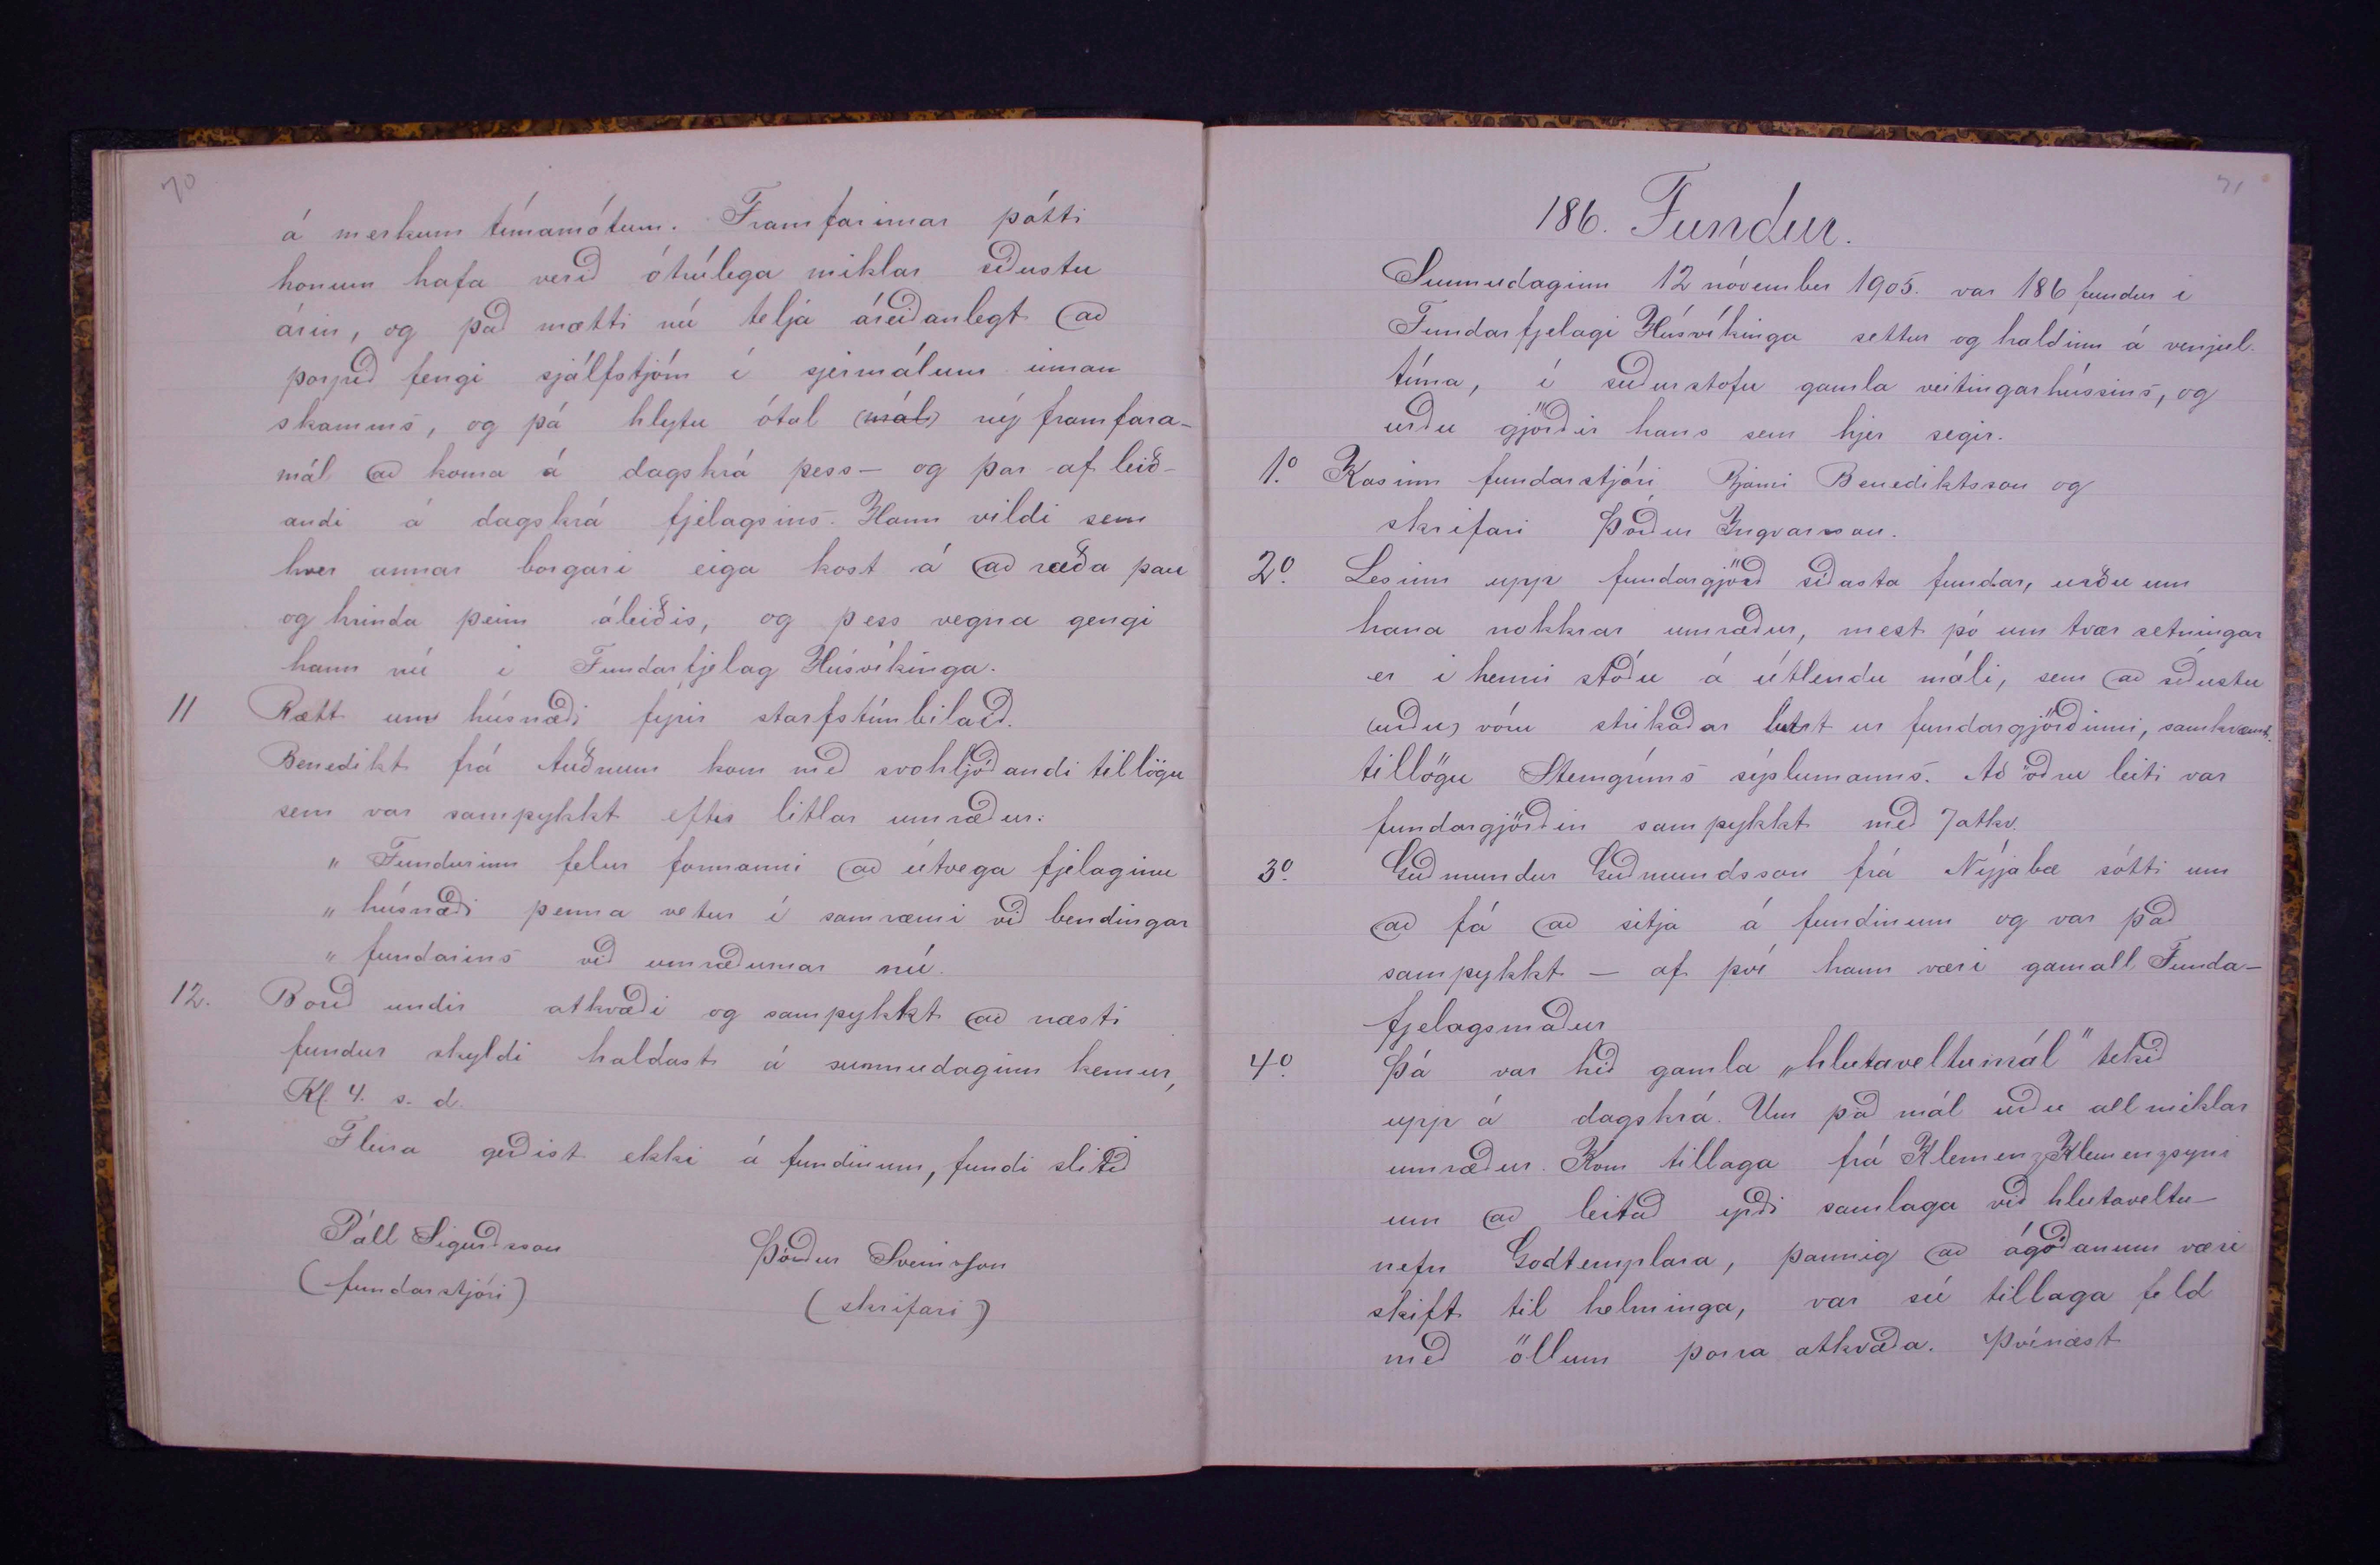 70
á merkum tímamótum. Framfarirnar þótti
honum hafa verið ótrúlega miklar síðustu
árin, og það mætti nú telja áreiðanlegt að
þorpið fengi sjálfstjórn í sjermálum innan
skamms, og þá hlytu ótal (mál) ný framfara-
mál að koma á dagskrá þess – og þar af leið-
andi á dagskrá fjelagsins. Hann vildi sem
hver annar borgari eiga kost á að ræða þau
og hrinda þeim áleiðis, og þess vegna gengi
hann nú í Fundarfjelag Húsvíkinga.
11 Rætt um húsnæði fyrir starfstímbilaið.
Benedikt frá Auðnum kom með svohljóðandi tillögu
sem var samþykkt eftir litlar umræður:
" Fundurinn felur formanni að útvega fjelaginu
" húsnæði þenna vetur í samræmi við bendingar
" fundarins við umræðurnar nú.
12. Borið undir atkvæði og samþykkt að næsti
fundur skyldi haldast á sunnudaginn kemur,
Kl. 4. s. d.
Fleira gerðist ekki á fundinum, fundi slitið
Páll Sigurðsson
(fundarstjóri)
Þórður Sveinsson
(skrifari)
71
186. Fundur.
Sunnudaginn 12 nóvember 1905. var 186 fundur í
Fundarfjelagi Húsvíkinga settur og haldinn á venjul.
tíma, í suðurstofu gamla veitingarhússins, og
urðu gjörðir hans sem hjer segir.
1.º Kosinn fundarstjóri Bjarni Benediktsson og
skrifari Þórður Ingvarsson.
2.º Lesinn upp fundargjörð síðasta fundar, urðu um
hana nokkrar umræður, mest þó um tvær setningar
er í henni stóðu á útlendu máli, sem að síðustu
(urðu) vóru strikaðar burt ur fundargjörðinni, samkvæmt.
tillögu Steingríms sýslumanns. Að öðru leiti var
fundargjörðin samþykkt með 7 atkv.
3.º Guðmundur Guðmundsson frá Nýjabæ sótti um
að fá að sitja á fundinum og var það
samþykkt – af því hann væri gamall Funda-
fjelagsmaður
4.º Þá var hið gamla „hlutaveltumál" tekið
upp á dagskrá. Um það mál urðu all miklar
umræður. Kom tillaga frá Klemenz Klemenzsyni
um að leitað yrði samlaga við hlutaveltu-
nefn Goodtemplara, þannig að ágóðanum væri
skift til helminga, var sú tillaga feld
með öllum þorra atkvæða. Þvínæst